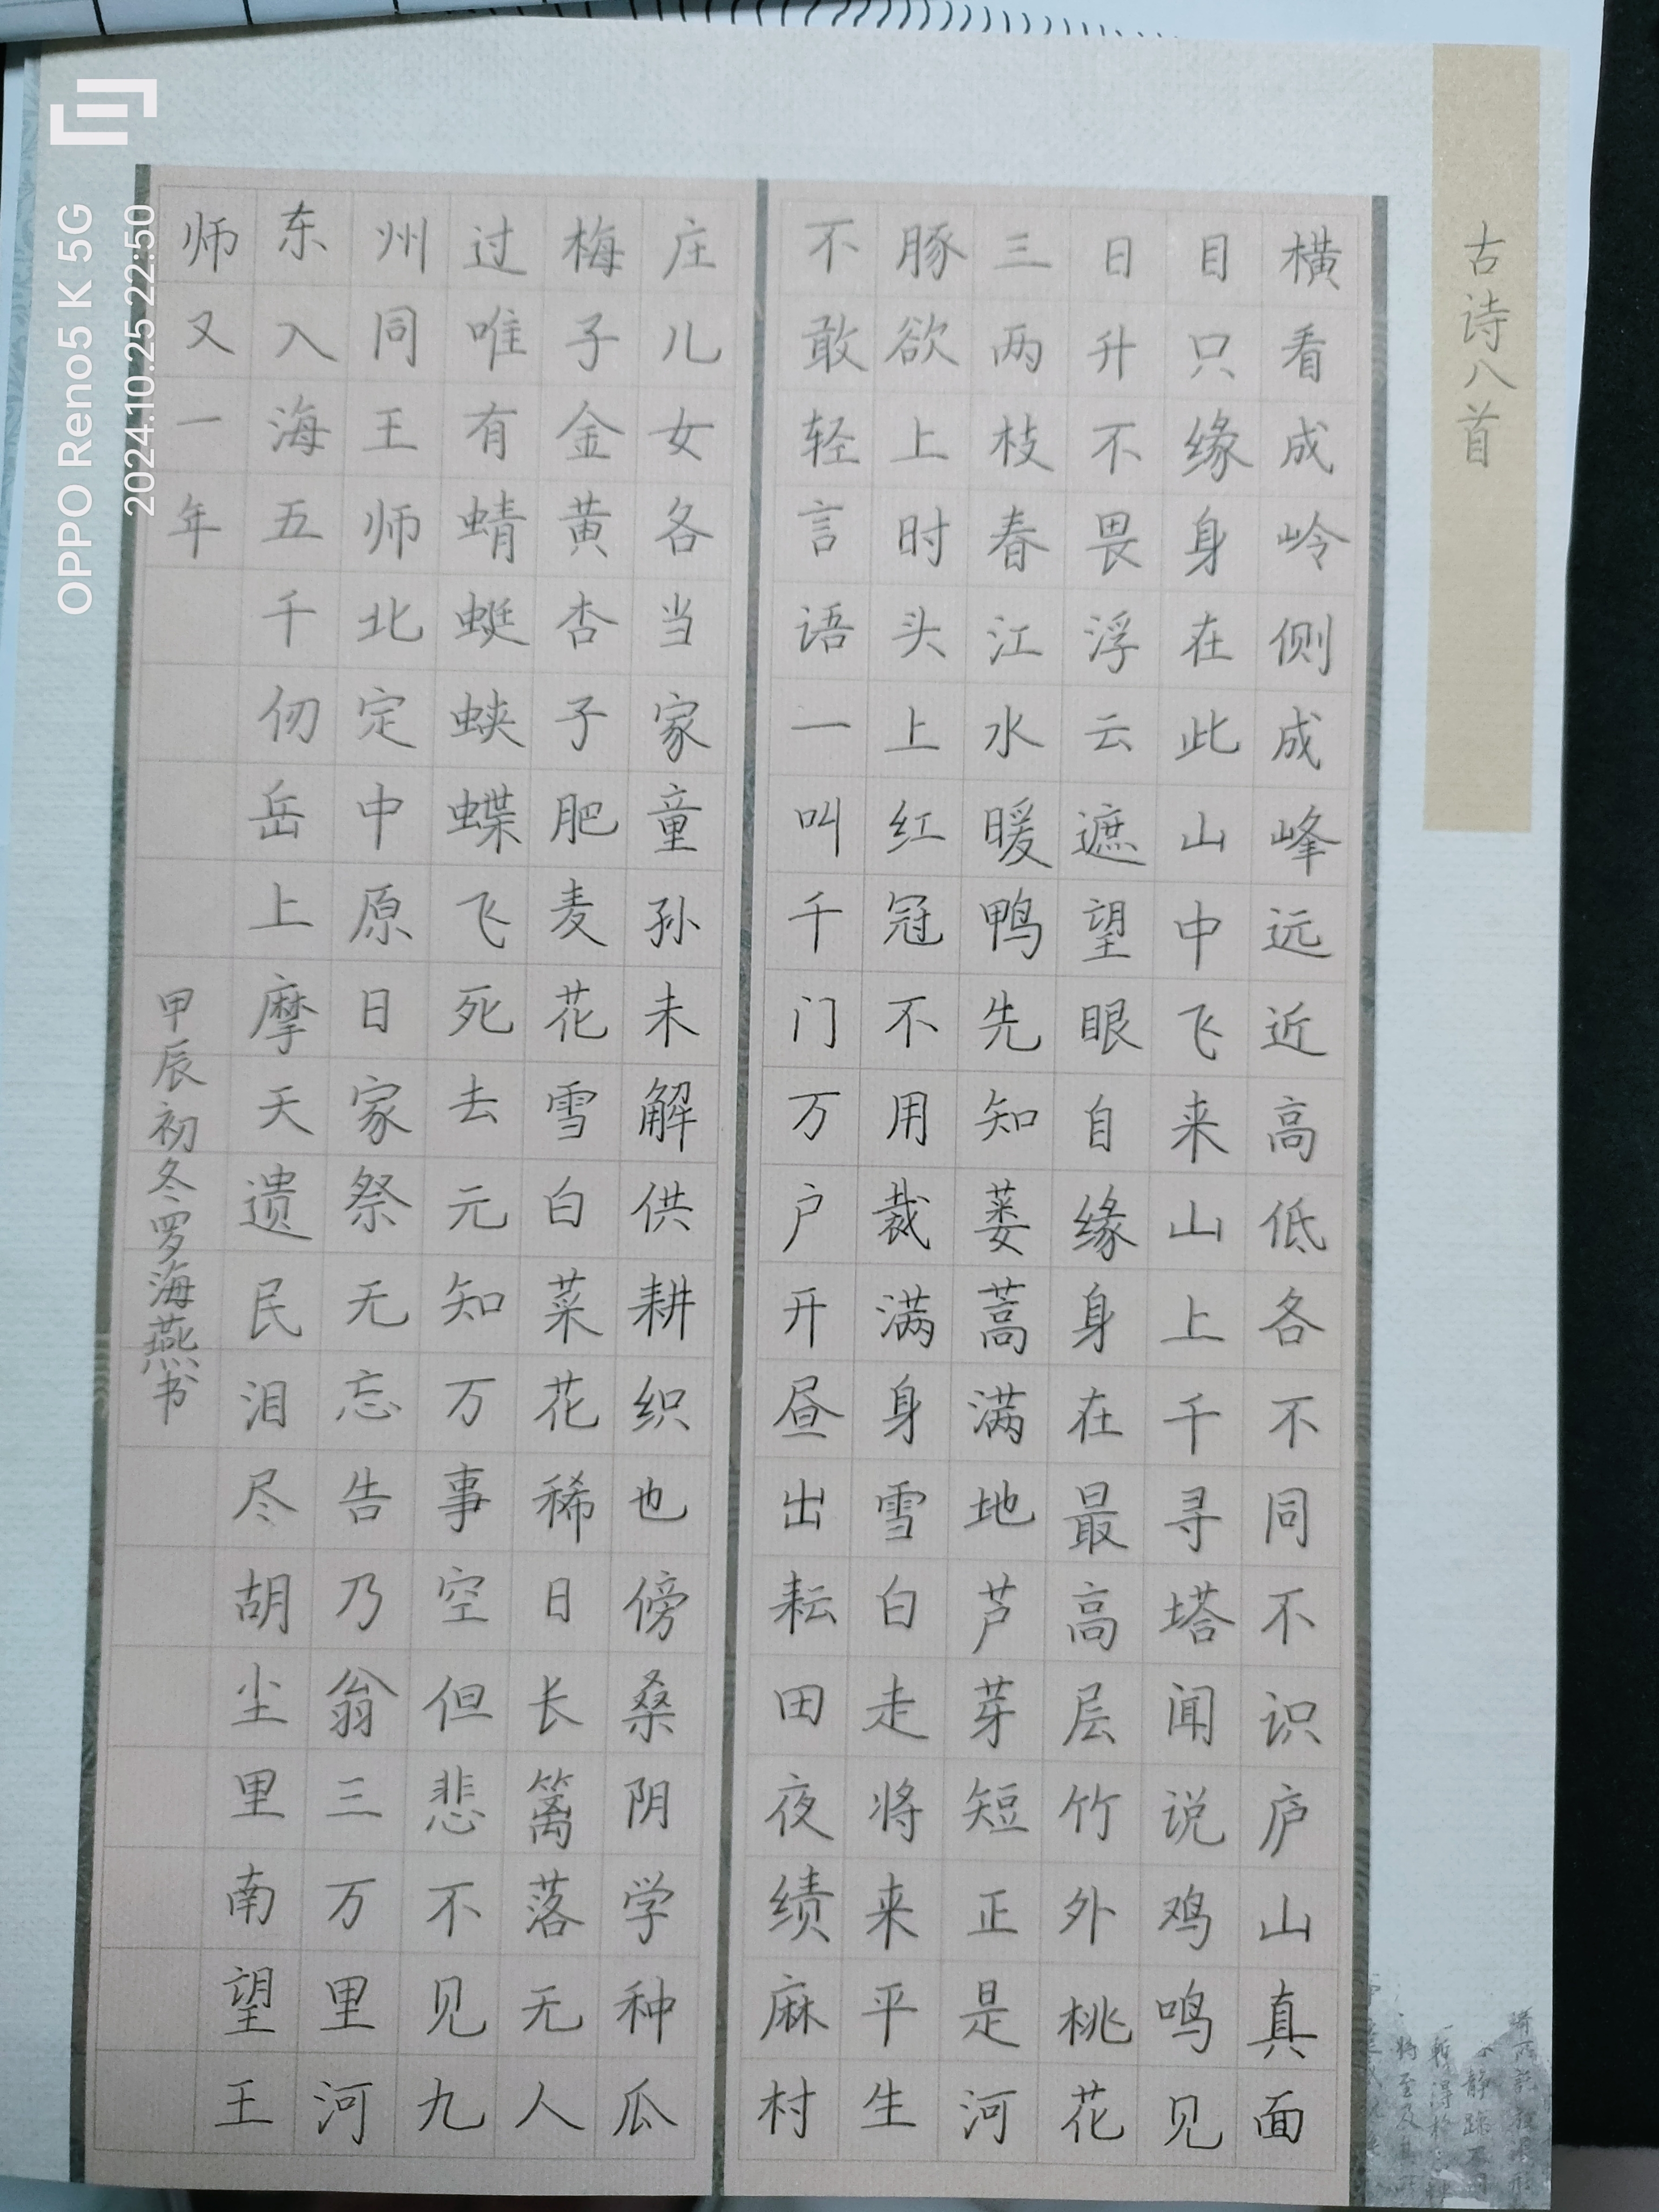 古诗八首
横看成岭侧成峰远近高低各不同不识庐山真面
目只缘身在此山中飞来山上千寻塔闻说鸡鸣见
日升不畏浮云遮望眼自缘身在最高层竹外桃花
三两枝春江水暖鸭先知蒌蒿满地芦芽短正是河
豚欲上时头上红冠不用裁满身雪白走将来平生
不敢轻言语一叫千门万户开昼出耘田夜绩麻村
庄儿女各当家童孙未解供耕织也傍桑阴学种瓜
梅子金黄杏子肥麦花雪白菜花稀日长篱落无人
过唯有蜻蜓蛱蝶飞死去元知万事空但悲不见九
州同王师北定中原日家祭无忘告乃翁三万里河
东入海五千仞岳上摩天遗民泪尽胡尘里南望王
师又一年
甲辰初冬罗海燕书
OPPO Reno5 K 5G
2024.10.25 22:50